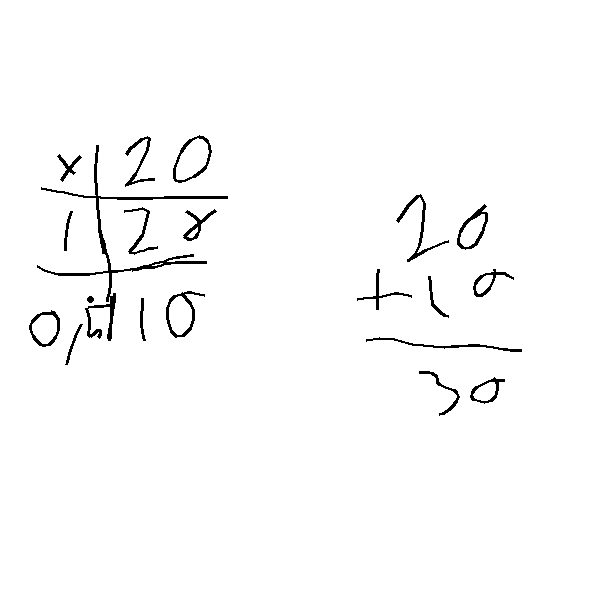 x 20
1 20
0,5 10
20
+10
30